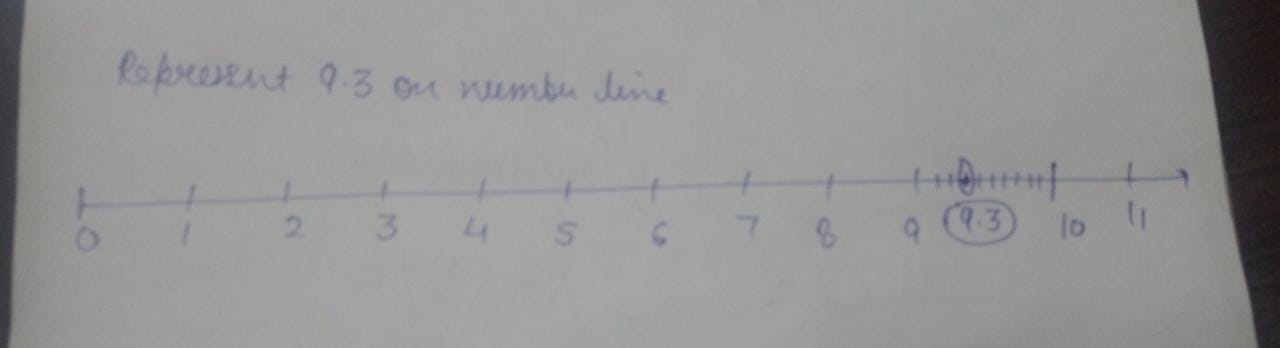 Represent 9.3 on number line
0 1 2 3 4 5 6 7 8 9 9.3 10 11